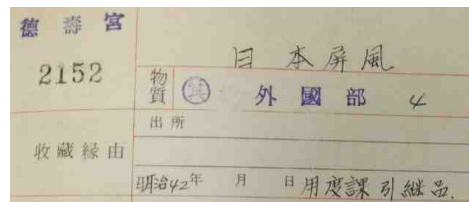 德壽宮
2152
日本屏風
物質 外國部 4
出所
收藏緣由
明治42年 月 日 用度課引継品.